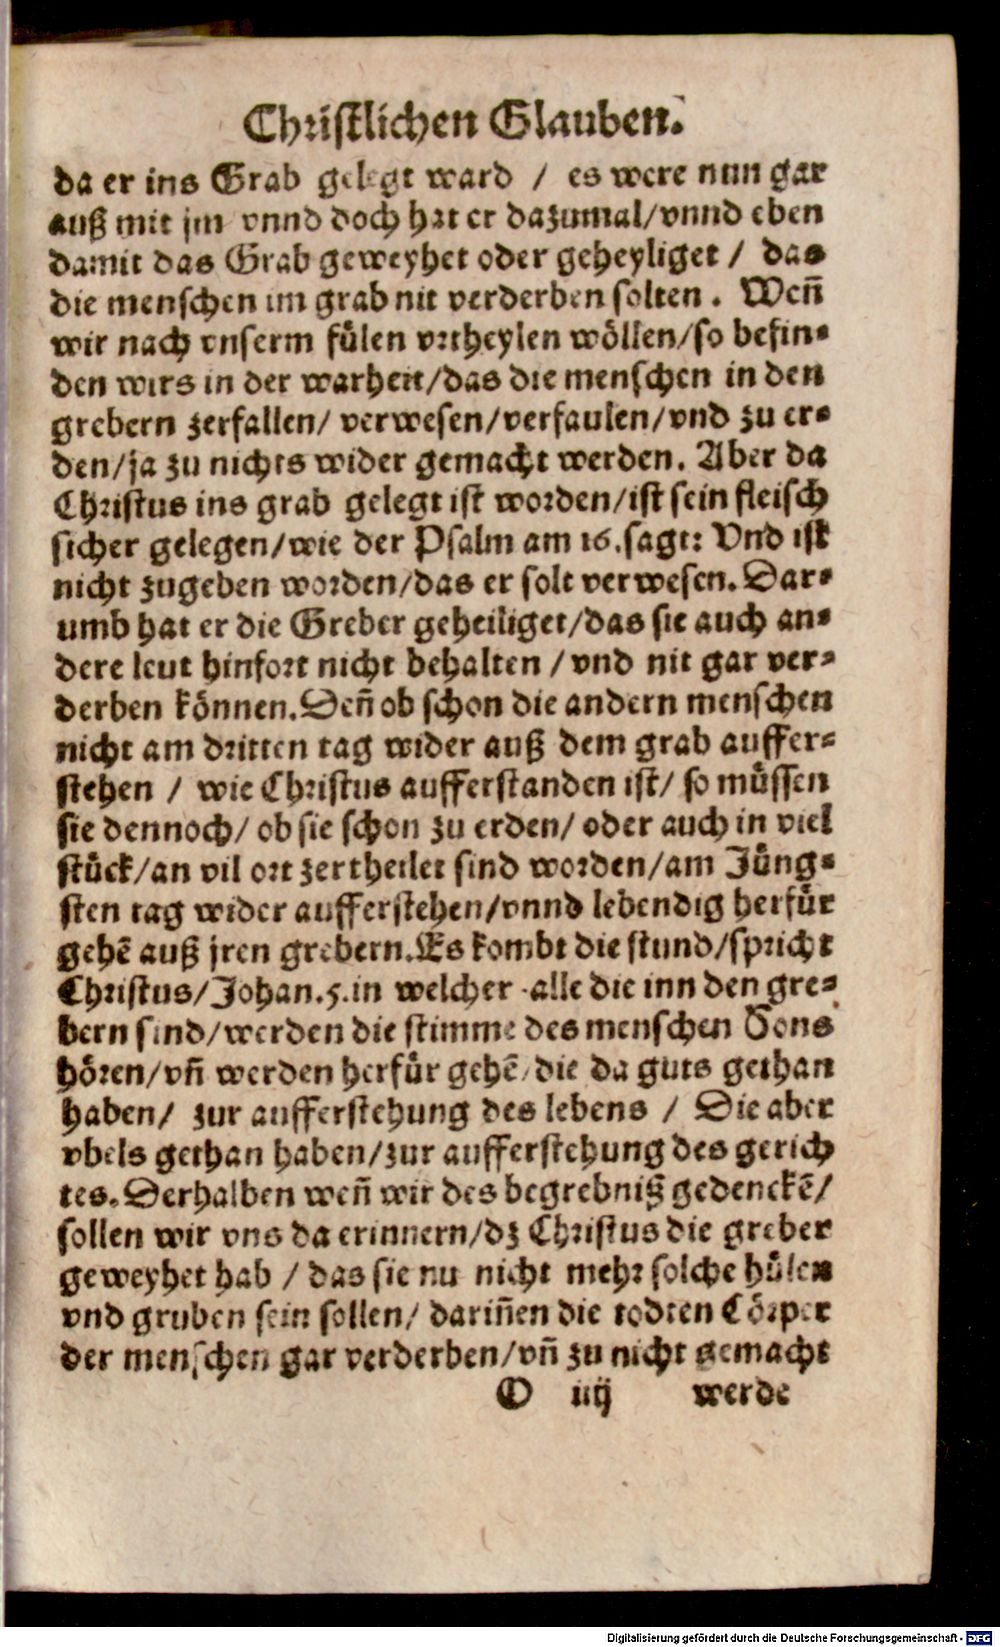 Christlichen Glauben.
da er ins Grab gelegt ward / es were nun gar
auß mit jm vnnd doch hat er dazumal/vnnd eben
damit das Grab geweyhet oder geheyliget / das
die menschen im grab nit verderben solten. Weñ
wir nach vnserm fülen vrtheylen wöllen/so befin-
den wirs in der warheit/das die menschen in den
grebern zerfallen/ verwesen/verfaulen/vnd zu er-
den/ja zu nichts wider gemacht werden. Aber da
Christus ins grab gelegt ist worden/ist sein fleisch
sicher gelegen/wie der Psalm am 16.sagt: Vnd ist
nicht zugeben worden/das er solt verwesen. Dar-
umb hat er die Greber geheiliget/das sie auch an-
dere leut hinfort nicht behalten /vnd nit gar ver-
derben können. Deñ ob schon die andern menschen
nicht am dritten tag wider auß dem grab auffer-
stehen / wie Christus aufferstanden ist/ so müssen
sie dennoch/ ob sie schon zu erden/ oder auch in viel
stück/an vil ort zertheilet sind worden/am Jüng-
sten tag wider aufferstehen/vnnd lebendig herfür
gehẽ auß jren grebern. Es kombt die stund/spricht
Christus/Johan.5.in welcher alle die inn den gre-
bern sind/werden die stimme des menschen Sons
hören/vñ werden herfür gehẽ/die da guts gethan
haben/ zur aufferstehung des lebens / Die aber
vbels gethan haben/zur aufferstehung des gerich
tes. Derhalben weñ wir des begrebniß gedenckẽ/
sollen wir vns da erinnern/dz Christus die greber
geweyhet hab / das sie nu nicht mehr solche hülen
vnd gruben sein sollen/ dariñen die todten Cörper
der menschen gar verderben/vñ zu nicht gemacht
O iiij werde
Digitalisierung gefördert durch die Deutsche Forschungsgemeinschaft - DFG